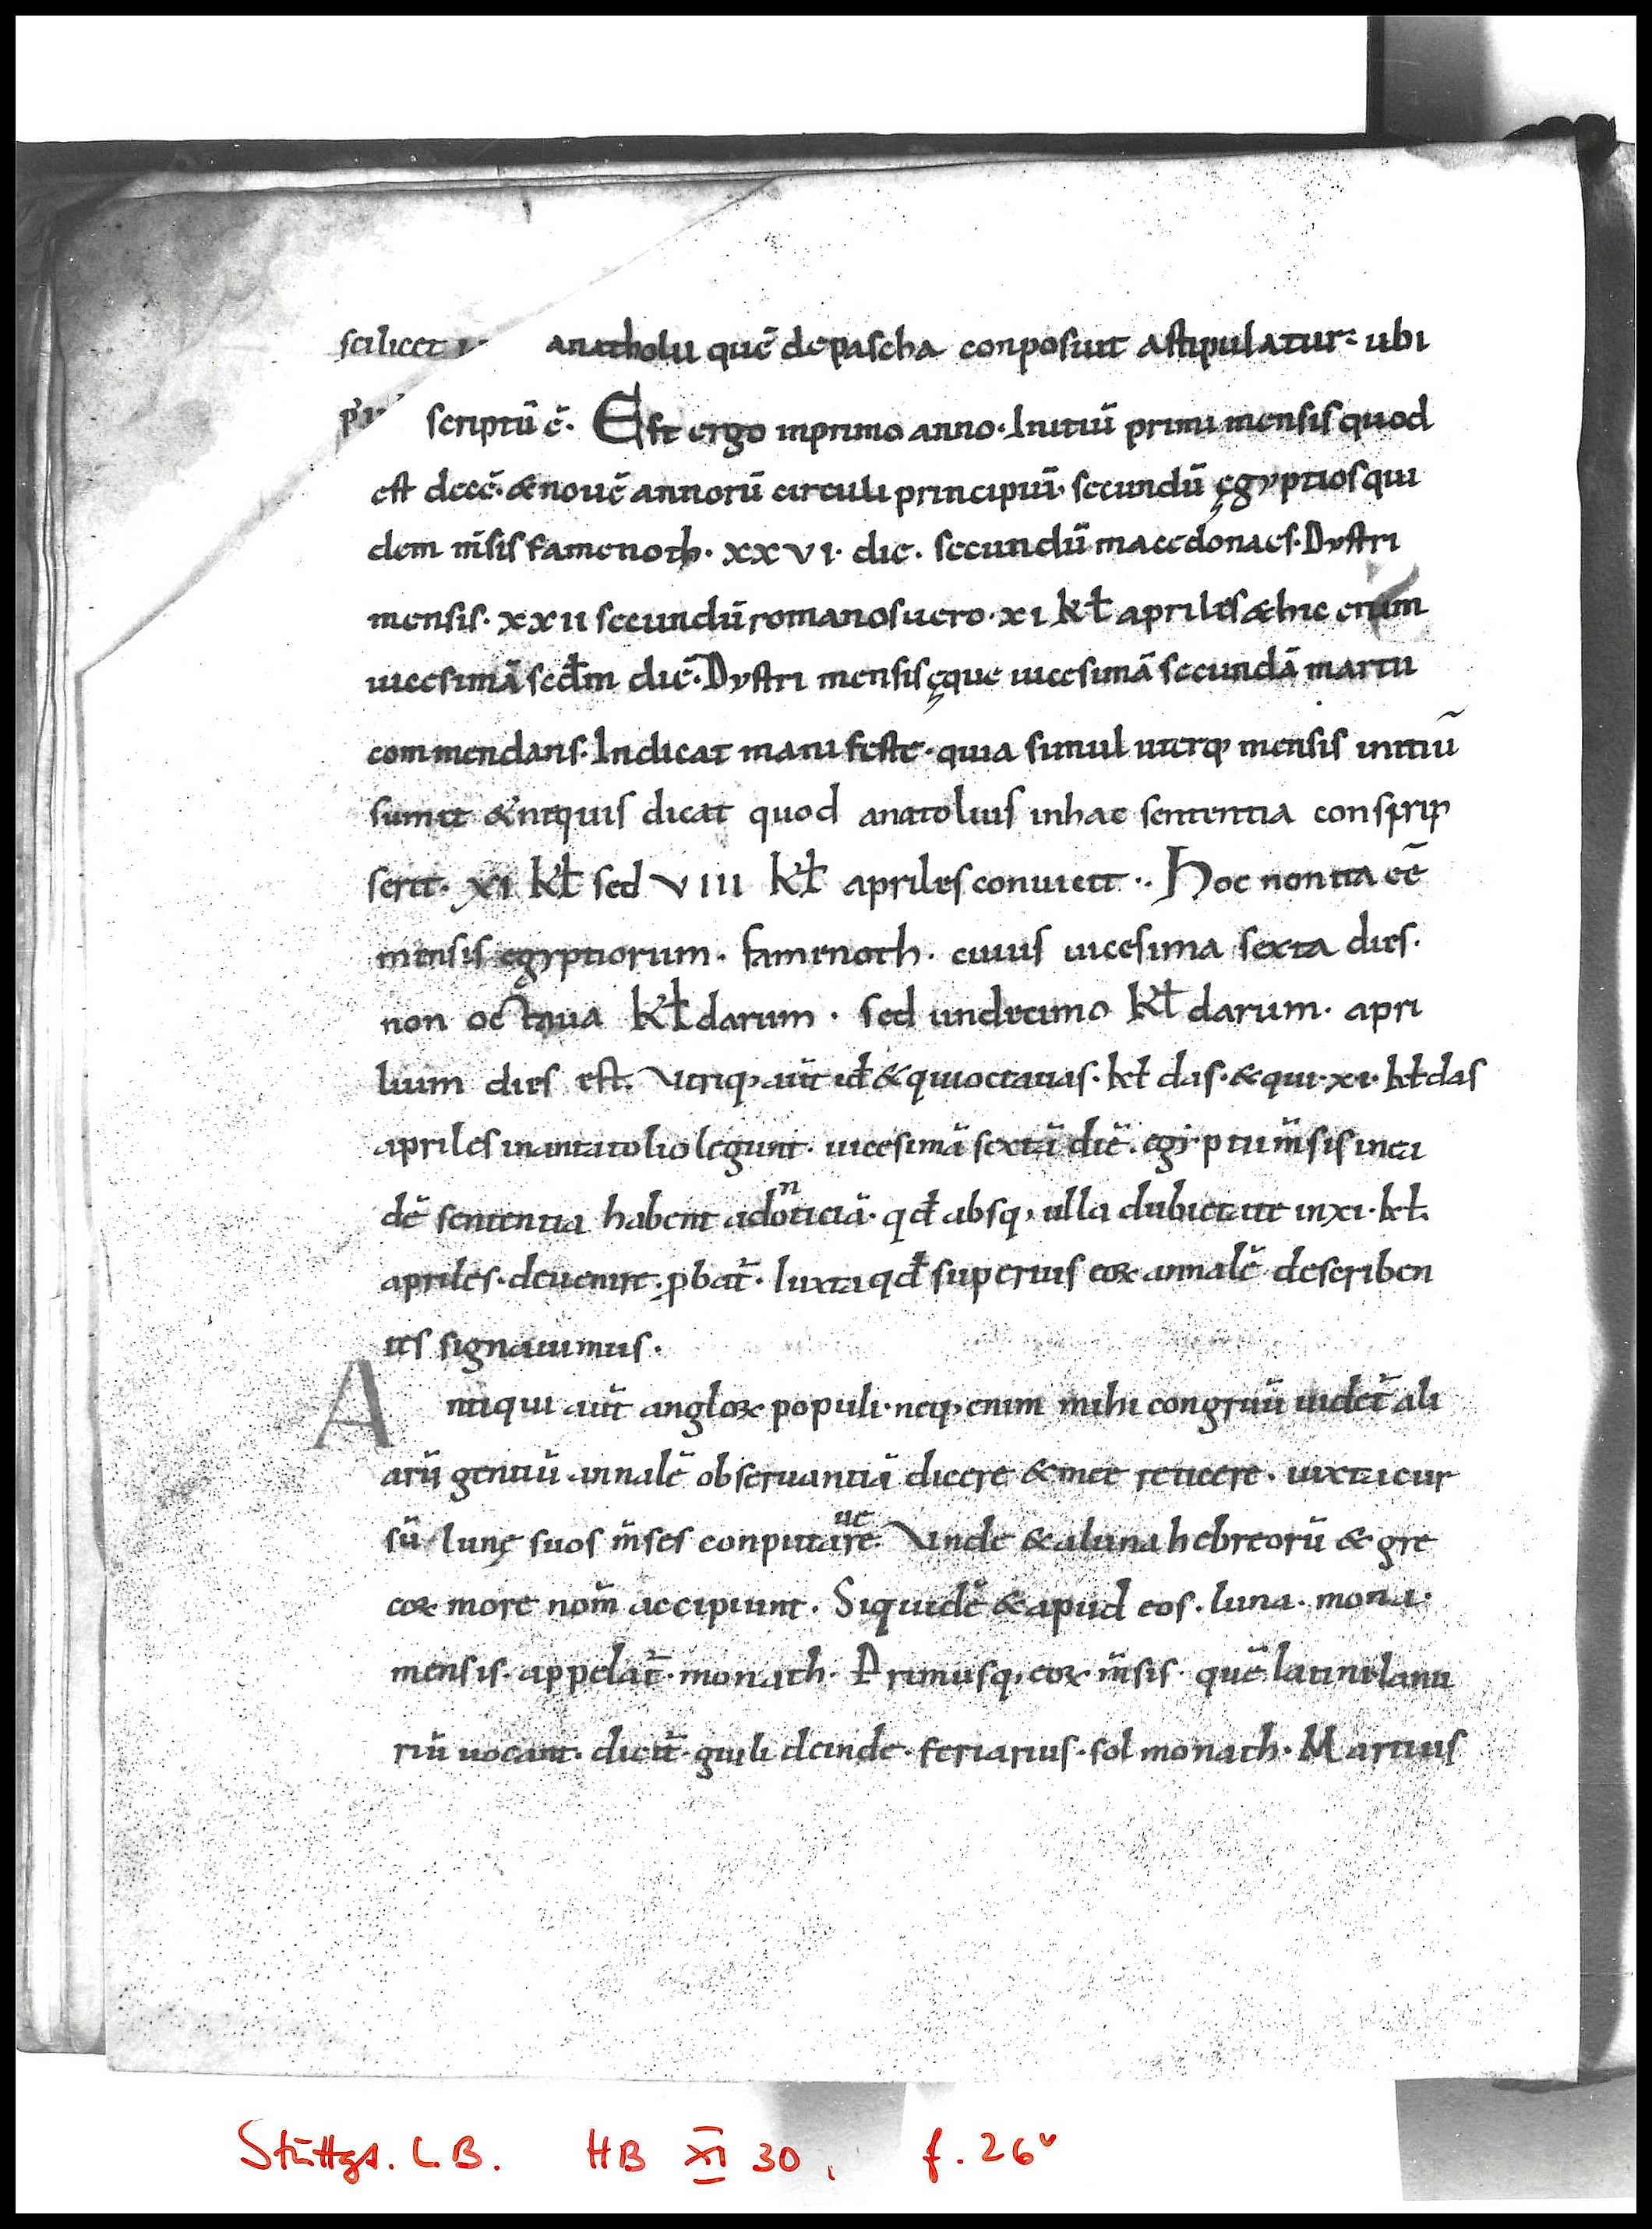 scilicet anatholii quē depascha conposuit astipulatur: ubi
scriptū ē. Est ergo inprimo anno. Initiū primi mensis quod
est decē. &nouē annorū circuli principiū. secundū ęgyptios qui
dem m̄sis famenoth. xxvi. die. secundū macedonaes. Dystri
mensis. xxii secundū romanos uero. xi kƚ apriles &hic enim
uicesimā secđm diē. Dystri mensis ęque uicesimā secundā martii
commendans. Indicat manifeste. quia simul uterq; mensis initiū
sumit &nequis dicat quod anatolius inhac sententia conscrip
serit. xi kƚ sed viii kƚ apriles conuieit. Hoc non ita eē
mensis egyptiorum. famenoth. cuius uicesima sexta dies.
non octaua kƚdarum. sed undecimo kƚdarum. apri
lium dies est. Utriq; aūt iđ &quioctauas. kƚ das. &qui. xi. kƚdas
apriles inantatolio legunt. uicesimā sextā diē. egiptii m̄sis inea
dē sententia habent adnoticiā. qđ absq; ulla dubietate inxi. kƚ.
apriles. deuenire. ꝓbat̄. Iuxta qđ superius eoꝝ annalē describen
tes signauimus.
Antiqui aūt angloꝝ populi. neq; enim mihi congruū uidet̄ ali
arū gentiū annalē obseruantiā dicere &mee reticere. iuxta cur
sū lunę suos m̄ses conputauere. Unde &aluna hebreorū & gre
coꝝ more nom̄ accipiunt. Siquidē &apud eos. luna. mona.
mensis. appelat̄. monath. Primusq; eoꝝ m̄sis. quē latini Ianu
riū uocant. dicit̄. giuli deinde. feriarius. sol monath. Martius
Stuttgt. L.B. HB XI 30, f. 26v